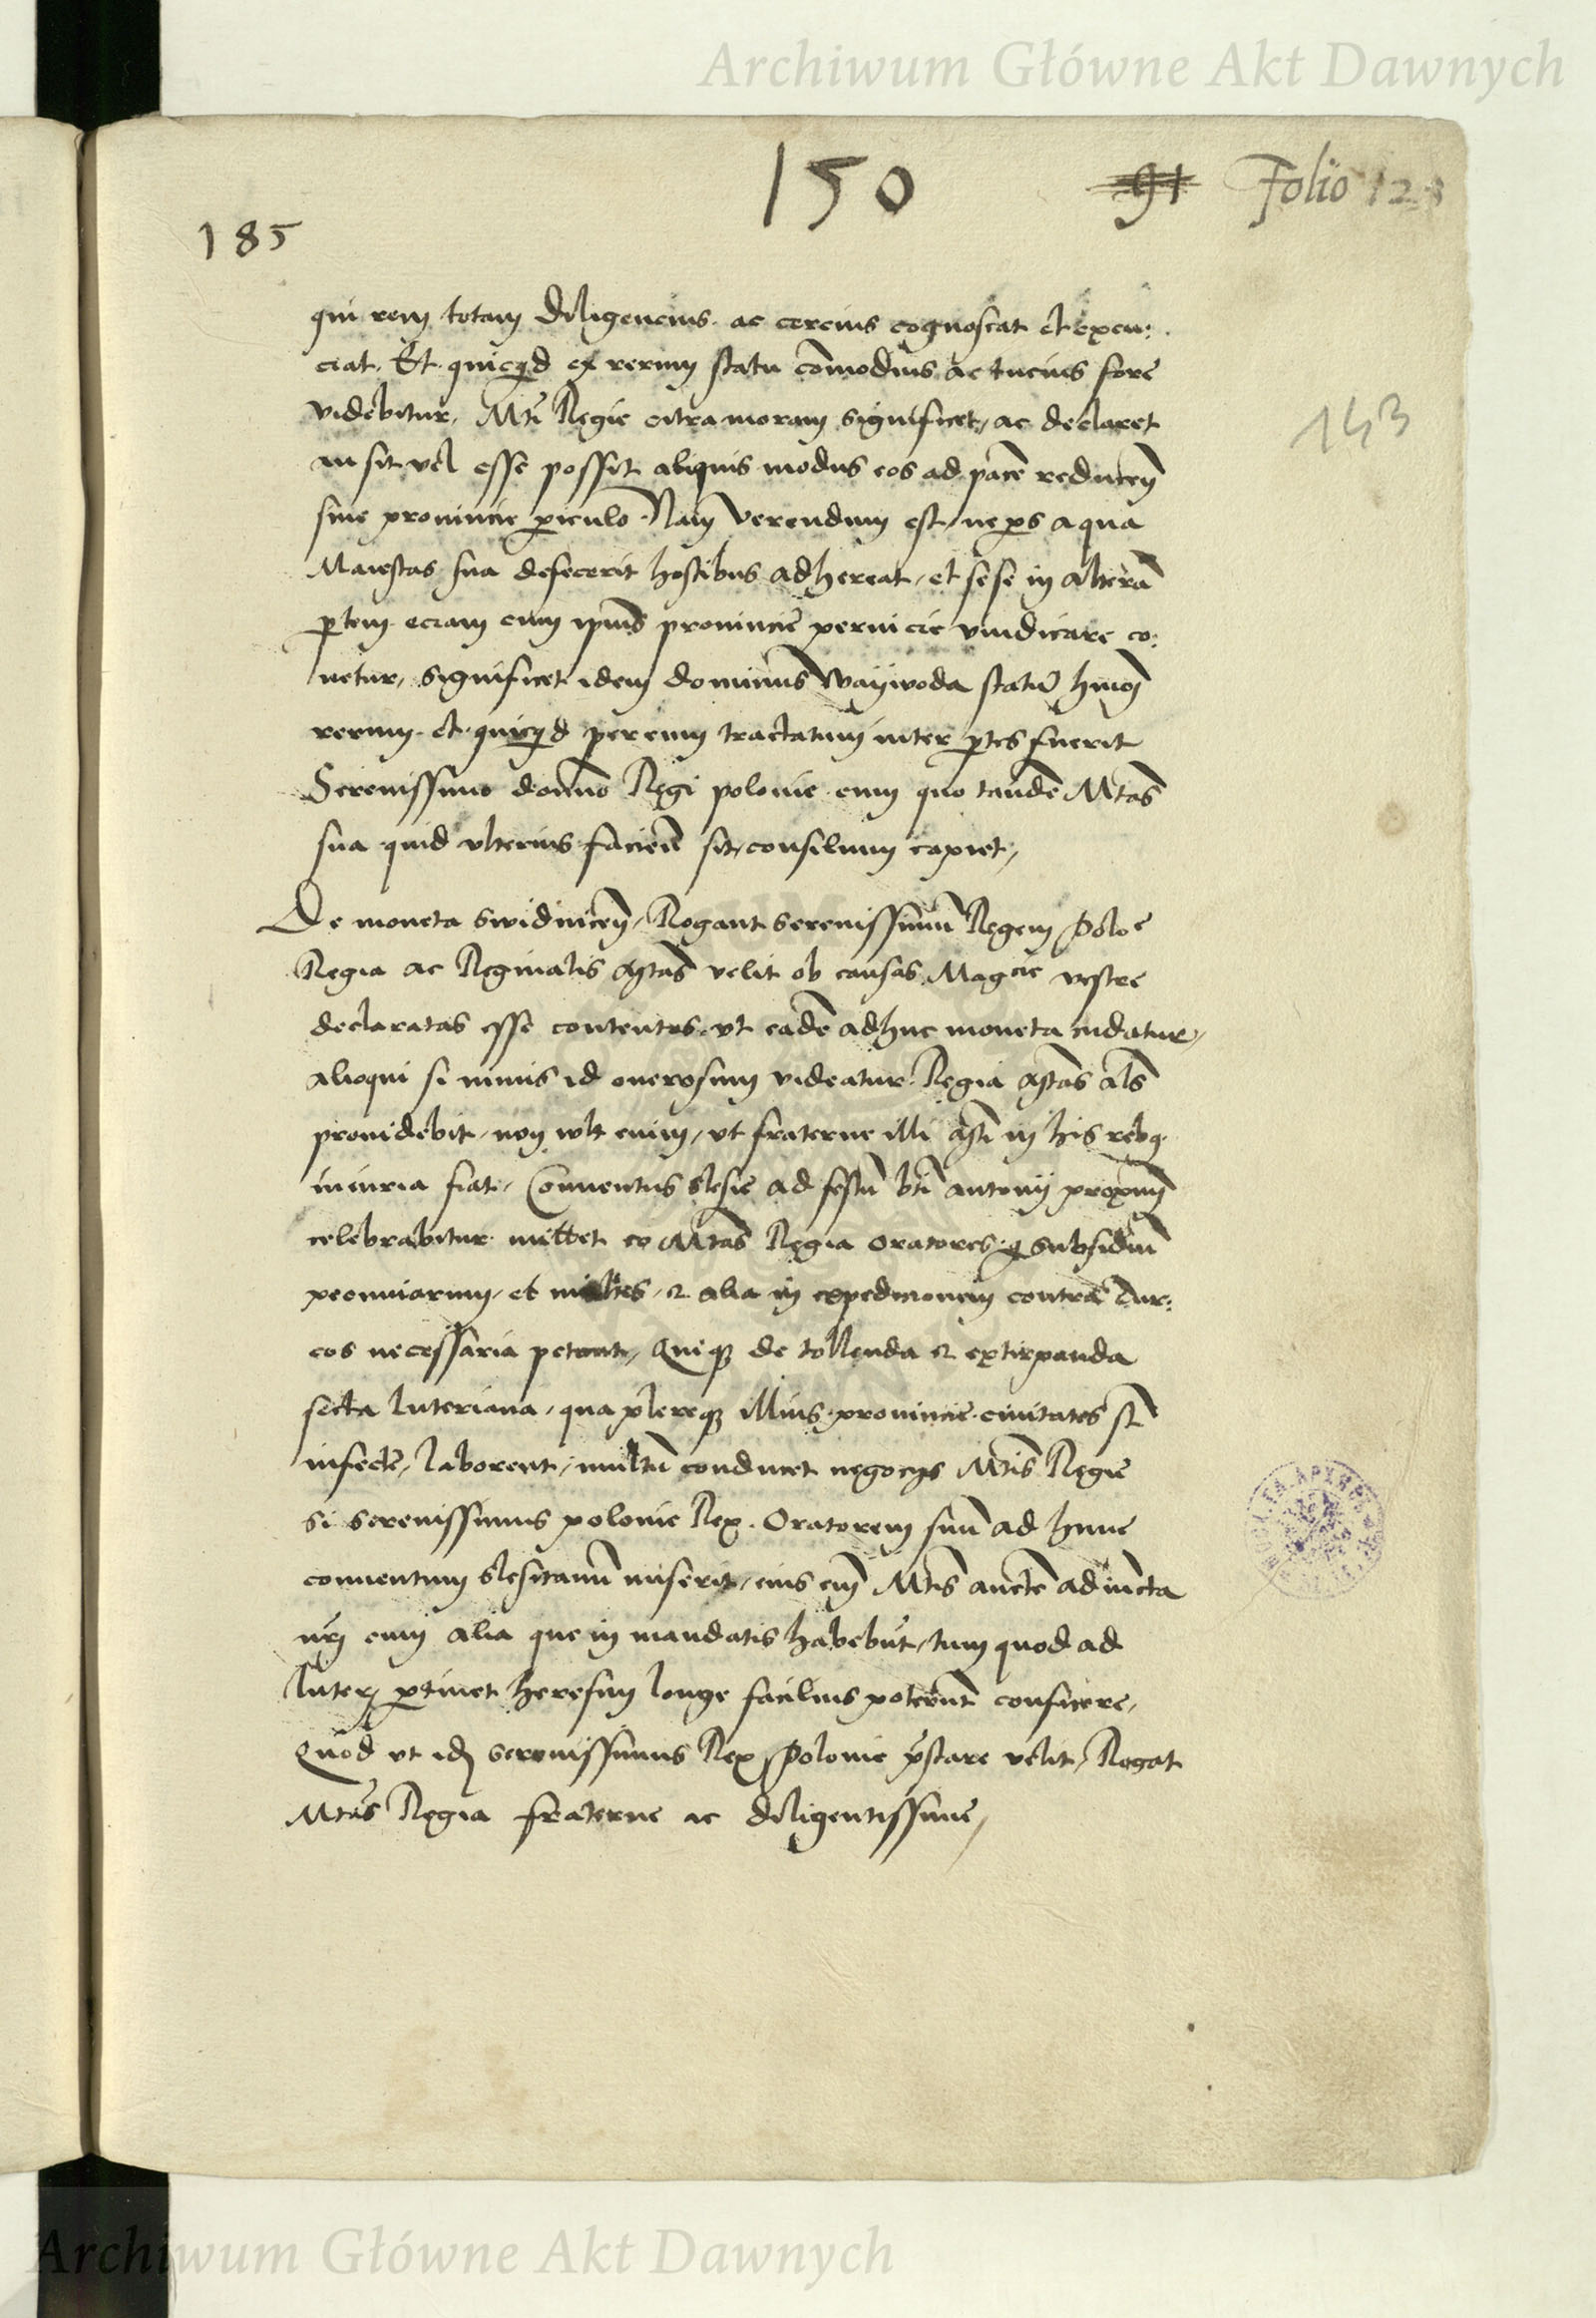 Archiwum Główne Akt Dawnych
150
91 Folio 123
185
qui rem totam diligencius ac cercius cognoscat et excu:
ciat. Et quicqd ex rerum statu cōmodius ac tucius fore
videbitur, Mti Regie citra moram significet, ac declaret
an sit vel esse possit aliquis modus eos ad pacē reducen̄
sine provincie periculo. Nam verendum est, ne pars a qua
Maiestas sua defecerit hostibus adhereat, et sese in alterā
partem eciam cum ipius provincie pernicie vindicare co:
netur, significet idem dominus wayiwoda statū hmoi
rerum et quicqd per eum tractatum inter partes fuerit
Serenissimo domno Regi polonie cum quo tandē Mtas
sua quid ulterius facien̄ sit, consilium capiet,
143
De moneta swidnicen̄, Rogant serenissimū Regem Poloe
Regia ac Reginalis Mtas velit ob causas Magcie vestre
declaratas esse contentus, vt eadē adhuc moneta cudatur,
alioqui si nimis id onerosum videatur Regia Mtas als
providebit, non vult enim, vt fraterne illi Mti in his rebq
iniuria fiat, Conuentus slesie ad festū bti antonij proximū
celebrabitur mittet eo Mtas Regia oratores q subsidiū
pecuniarum, et milites, & alia in expedicionem contra Tur:
cos necessaria petant, Quiq de tollenda & extirpanda
secta luteriana, qua plereq illius provincie civitates st
infecte, laborent, multū conducet negocijs Mtis Regie
si serenissimus polonie Rex Oratorem suū ad hunc
conuentum slesitanū miserit, eius em̄ Mtis aucte adiuncta
cum alia que in mandatis habebūt, tum quod ad
luteri pertinet heresim longe facilius poterūt conficere,
Quod vt idem serenissimus Rex Polonie prestare velit, Rogat
Mtas Regia fraterne ac diligentissime,
Archiwum Główne Akt Dawnych